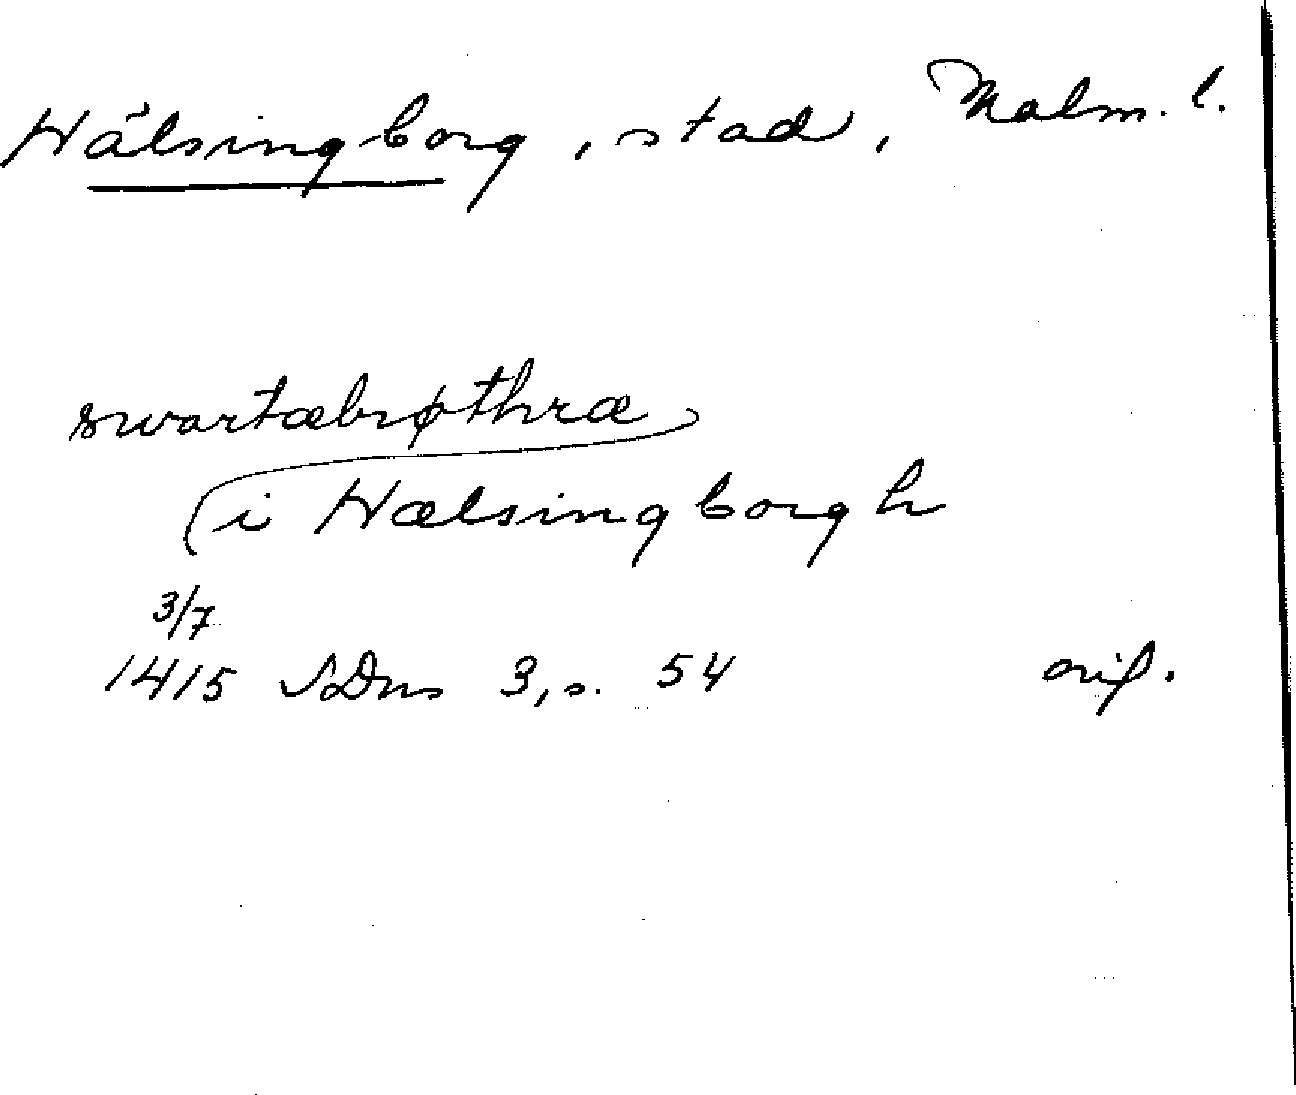 Hälsingborg, stad, Malm. l.
swartæbrøthræ
i Hælsingborgh
3/7
1415 SDns 3, s. 54 orig.